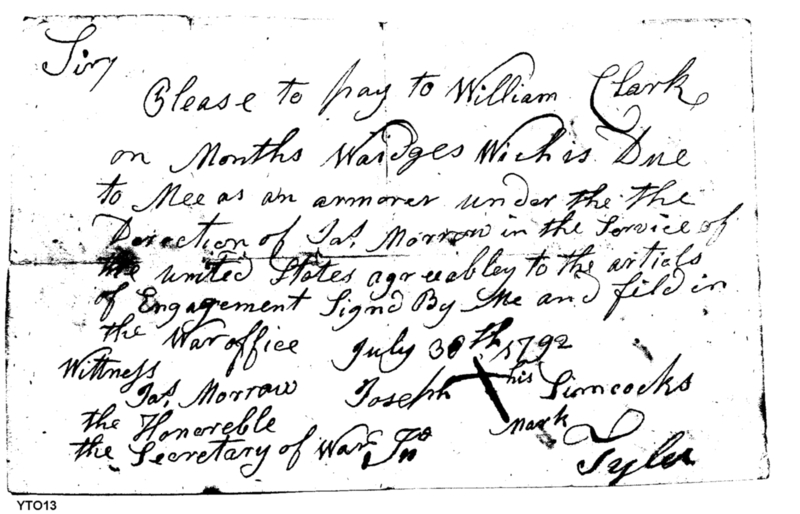 Sir
Please to pay to William Clark
on Months Waidges Wich is Due
to Mee as an armorer under the the
Derection of Jas. Morrow in the Service of
the united States agreeabley to the articls
of Engagement Signd By Me and fild in
the War office July 30th 1792
Wittness
Jas. Morrow Joseph his Simcocks
mark
the Honoreble
the Secretary of War
Tyler
YTO13